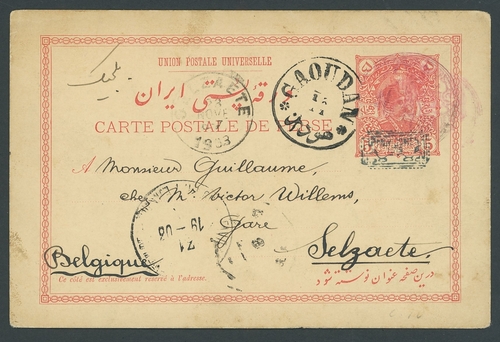 UNION POSTALE UNIVERSELLE
بلجیک
ورقه پستی ایران
CARTE POSTALE DE PERSE
* GAOUDAN *
1903
A Monsieur Guillaume,
chez Mr Victor Willems,
Gare
Selzaete.
Belgique
Ce côté est exclusivement réservé à l'adresse.
درین صفحه عنوان نوشته شود